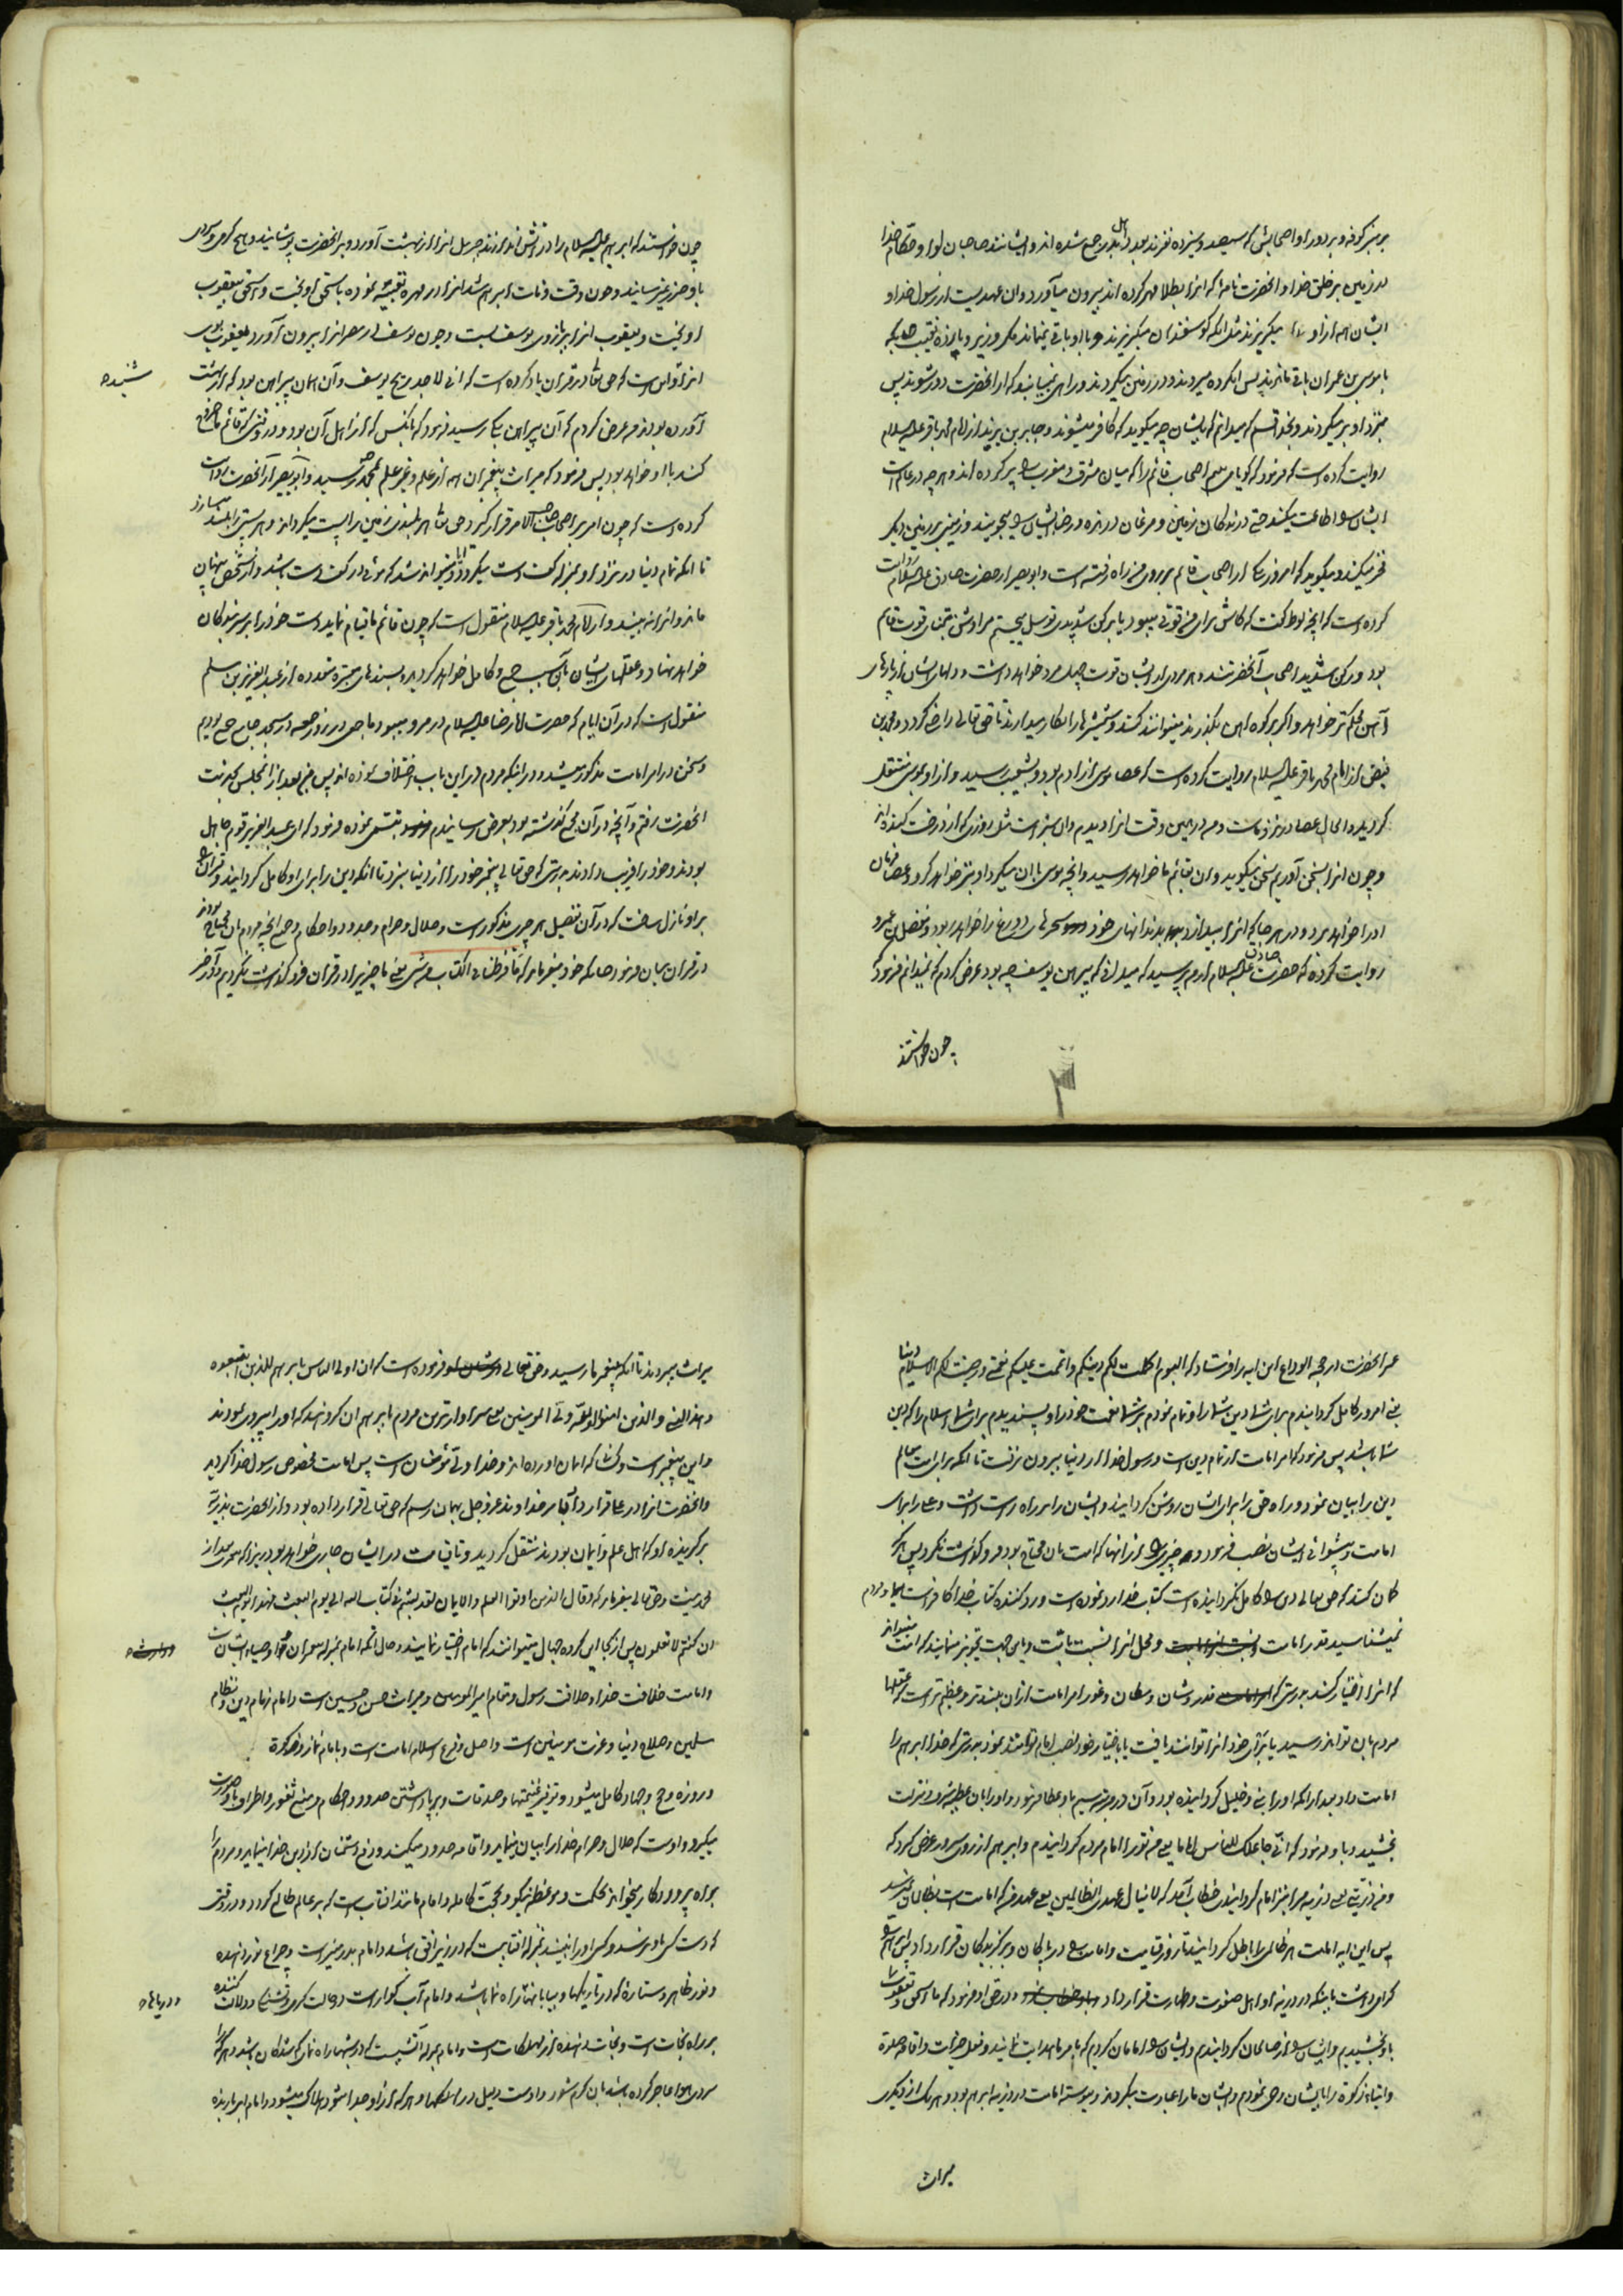 بر منبر کوفه و بر دور او اصحابش که سیصد و سیزده نفرند بعدد اهل بدر جمع شده اند و ایشانند صاحبان لوا و حکام خدا
در زمین بر خلق خدا و انحضرت نامهٔ که انرا بطلا مهر کرده اند بیرون میآورد و ان عهدیست از رسول خدا و
ایشان همه از او میگریزند مثل انکه گوسفندان میگریزند و با او باقی نمیماند مگر وزیر و یازده نقیب چنانکه
با موسی بن عمران باقی ماندند پس انکروه میروند و در زمین میگردند و راهی نمییابند که از انحضرت دور شوند پس
بنزد او برمیگردند و بخدا قسم که میدانم که بایشان چه میگوید که کافر میشوند و جابر بن یزید از امام محمد باقر علیه السلام
روایت کرده است که فرمود که گویا می بینم اصحاب قائم را که میان مشرق و مغرب را پر کرده اند و هر چه در عالم است
ایشان را اطاعت میکنند حتی درندگان زمین و مرغان درنده و رضای ایشان را میجویند و زمینی بر زمین دیگر
فخر میکند و میگوید که امروز یکی از اصحاب قائم بر روی من راه رفته است و ابو بصیر از حضرت صادق علیه السلام روایت
کرده است که انچه لوط گفت که کاش برای من قوتی میبود یا برکن شدیدی توسل میجستم مرادش تمنای قوت قائم
بود و رکن شدید اصحاب آنحضرتند و هر مردی از ایشان قوت چهل مرد خواهد داشت و دلهای ایشان از پارهای
آهن محکمتر خواهد بود و اگر بر کوه آهن بگذرند میتوانند کند و شمشیرها را بکار میدارند تا حق تعالی راضی گردد و محمد بن
فیض از امام محمد باقر علیه السلام روایت کرده است که عصای موسی از ادم بود و بشعیب رسید و از او بموسی منتقل
گردید و الحال عصا در نزد ماست و من در همین وقت انرا دیدم و ان سبز است مثل روزی که از درخت کنده اند
و چون انرا بسخن آوریم سخن میگوید و ان بقائم ما خواهد رسید و انچه موسی با ان میکرد او نیز خواهد کرد و عصا فرمان
او را خواهد برد و در هر جا که انرا بیندازد بدندانهای خود سحرهای دروغ را خواهد ربود و مفضل بن عمرو
روایت کرده که حضرت صادق علیه السلام از من پرسید که میدانی که پیراهن یوسف چه بود عرض کردم که نمیدانم فرمود که
چون خواستند
چون خواستند که ابراهیم علیه السلام را در آتش اندازند جبرئیل انرا از بهشت آورد و بر انحضرت پوشانید و هیچ گرمی و سردی
باو ضرر نمیرسانید و چون وقت وفات ابراهیم شد انرا در مهره تعبیه نموده باسحق اویخت و اسحق بیعقوب
اویخت و یعقوب انرا ببازوی یوسف بست و چون یوسف در مصر انرا بیرون آورد یعقوب بوی
انرا شنید و این است که حق تعالی در قرآن یاد کرده است که انی لاجد ریح یوسف و آن همان پیراهن بود که از بهشت
شنیده
آورده بودند من عرض کردم که آن پیراهن بکه رسید فرمود که بانکس که از اهل آن بود و در وقتی که قائم ما خروج
کند با او خواهد بود پس فرمود که میراث پیغمبران همه از علم و غیر علم بمحمد ص رسید و ابو بصیر از آنحضرت روایت
کرده است که چون امر بر صاحب الامر قرار گیرد حق تعالی هر بلندی زمین را پست میگرداند و هر پستی را بلند میسازد
تا انکه تمام دنیا در نزد او بمنزله کف دست میگردد و ایا میتواند شد که موئی در کف دست باشد و از شخص پنهان
ماند و انرا نه بیند و از امام محمد باقر علیه السلام منقول است که چون قائم ما قیام نماید دست خود را بر سر بندگان
خواهد نهاد و عقلهای ایشان بآن سبب جمع و کامل خواهد گردید و بسندهای معتبره متعدده از عبد العزیز بن مسلم
منقول است که در آن ایام که حضرت امام رضا علیه السلام در مرو میبود ما جمعی در روز جمعه در مسجد جامع جمع بودیم
و سخن در امر امامت مذکور میشد و در اینکه مردم در این باب اختلاف نموده اند پس من بعد از ان مجلس بخدمت
انحضرت رفتم و آنچه در آن مجمع گذشته بود بعرض رسانیدم تبسمی نموده فرمود که ای عبد العزیز قوم جاهل
بودند و خود را فریب دادند بدرستی که حق تعالی پیغمبر خود را از دنیا نبرد تا انکه دین را برای او کامل گردانید و قران را
بر او نازل ساخت که در آن تفصیل هر چیزی مذکور است و حلال و حرام و حدود و احکام و جمیع انچه مردم بان محتاج بودند
در قران بیان فرمود چنانکه خود میفرماید که ما فرطنا فی الکتاب من شیء یعنی ما چیزی را در قران فرو گذاشت نکردیم و در آخر
عمر انحضرت در حجة الوداع این ایه را فرستاد که الیوم اکملت لکم دینکم و اتممت علیکم نعمتی و رضیت لکم الاسلام دینا
یعنی امروز کامل گردانیدم برای شما دین شما را و تمام نمودم بر شما نعمت خود را و پسندیدم برای شما اسلام را که دین
شما باشد پس فرمود که امر امامت از تمام دین است و رسول خدا از دنیا بیرون نرفت تا انکه برای امت معالم
دین را بیان نمود و راه حق را برای ایشان روشن گردانید و ایشان را بر راه راست داشت و علی را برای
امامت و پیشوائی ایشان نصب فرمود و چیزی را از انها که امت بان محتاج بود فرو گذاشت نکرد پس هر که
گمان کند که حق تعالی دین را کامل نگردانیده است کتاب خدا را رد نموده است و رد کننده کتاب خدا کافر است ایا مردم
میشناسید قدر امامت و محل انرا نسبت بامت و باین جهت تجویز مینمایند که امت میتوانند
که انرا اختیار کنند بدرستی که قدر و شان و مکان و غور امر امامت از ان بلندتر و عظیم تر است که عقلهای
مردم بان تواند رسید یا برای خود انرا توانند یافت یا باختیار خود نصب امام توانند نمود بدرستی که خدا ابراهیم را
امامت داد بعد از انکه او را نبی و خلیل گردانیده بود و آن در مرتبه سیم باو عطا فرمود و او را بان عظیمه شرف و منزلت
بخشید و باو فرمود که انی جاعلک للناس اماما یعنی من تو را امام مردم گردانیدم و ابراهیم از روی سرور عرض کرد که
و من ذریتی یعنی ذریه مرا نیز امام گردانیدی خطاب آمد که لا ینال عهدی الظالمین یعنی عهد من که امامت است بظالمان نمیرسد
پس این ایه امامت هر ظالمی را باطل گردانید تا روز قیامت و امامت را در پاکان و برگزیدگان قرار داد پس ابراهیم را
گرامی داشت باینکه در ذریه او اهل صفوت و طهارت قرار داد و در حق او فرمود که ما اسحق و یعقوب را
باو بخشیدیم و ایشان را از صالحان گردانیدیم و ایشان را امامان کردیم که بامر ما هدایت نمایند و فعل خیرات و اقامه صلوة
و ایتاء زکوة را بایشان وحی نمودیم و ایشان ما را عبادت میکردند و پیوسته امامت در ذریه ابراهیم بود و هر یک از دیگری
میراث
میراث میبردند تا انکه بپیغمبر ما رسید و حق تعالی فرموده است که ان اولی الناس بابراهیم للذین اتبعوه
و هذا النبی و الذین امنوا و الله ولی المومنین یعنی سزاوارترین مردم بابراهیم ان کروهند که او را پیروی نمودند
و این پیغمبر است و کسانی که ایمان اورده اند و خدا ولی مؤمنان است پس امامت مخصوص رسول خدا گردید
و انحضرت انرا در علی قرار داد بامر خداوند عز و جل بهمان رسم که حق تعالی قرار داده بود و از انحضرت بذریه
برگزیده او که اهل علم و ایمان بودند منتقل گردید و تا قیامت در ایشان جاری خواهد بود زیرا که پیغمبری بعد از
محمد نیست و حق تعالی میفرماید که و قال الذین اوتوا العلم و الایمان لقد لبثتم فی کتاب الله الی یوم البعث فهذا یوم البعث
ان کنتم لا تعلمون پس از کجا این کروه جهال میتوانند که امام اختیار نمایند و حال آنکه امام بمنزله پیغمبران و اوصیاء ایشان است
و امامت خلافت خدا و خلافت رسول و مقام امیر المومنین و میراث حسن و حسین است و امام زمام دین و نظام
مسلمین و صلاح دنیا و عزت مومنین است و اصل و فرع اسلام امامت است و بامام نماز و زکوة
و روزه و حج و جهاد کامل میشود و توفیر غنیمتها و صدقات و برپا داشتن حدود و احکام و منع ثغور و اطراف باو صورت
میگیرد و اوست که حلال و حرام خدا را بیان مینماید و اقامه حدود میکند و دفع دشمنان از دین خدا مینماید و مردم را
براه پروردگار میخواند بحکمت و موعظه نیکو و حجت کامله و امام مانند افتاب است که بر عالم طالع گردد و در افقی
که دست کسی باو نرسد و کسی او را نبیند بمنزله افتابیست که در زیر افق باشد و امام بدر منیر است و چراغ نور دهنده
و نور ظاهر و ستاره که در تاریکیها و بیابانها راه نما باشد و امام آب گوار است در حالت گرمی و تشنگی و دلالت کننده
و دریاها
بر راه نجات است و نجات دهنده از مهلکات است و امام بمنزله آتشیست که در شبها راه نمای گمشدگان باشد و هر که را
سردی هوا عاجز کرده باشد بان گرم شود و اوست دلیل در مهلکها و هر که از او جدا شود هلاک میشود و امام ابر بارنده